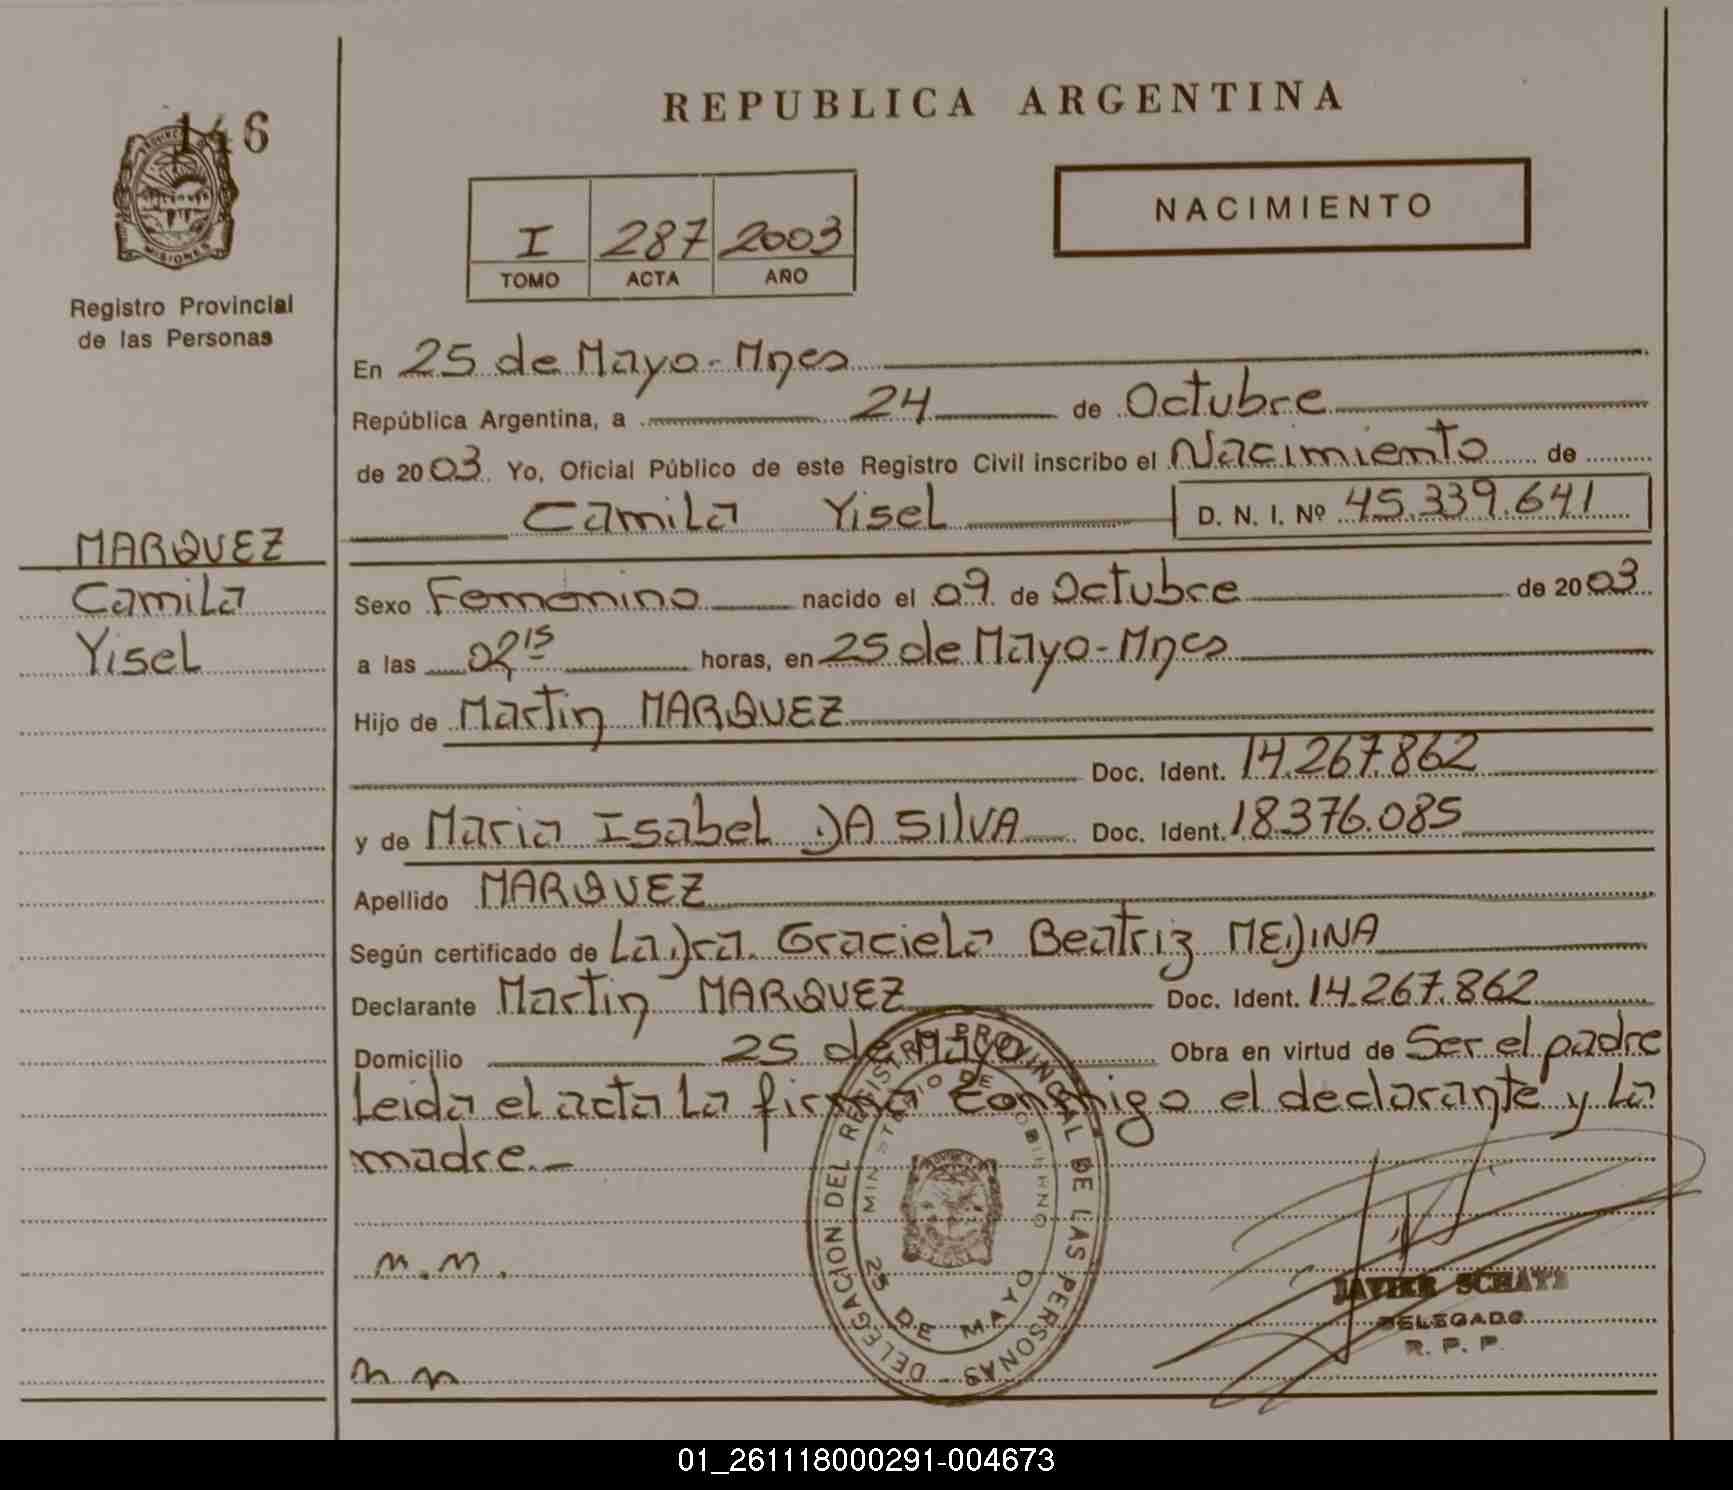 146
REPUBLICA ARGENTINA
NACIMIENTO
I 287 2003
TOMO ACTA AÑO
PROVINCIA
MISIONES
Registro Provincial
de las Personas
En 25 de Mayo - Mnes
República Argentina, a 24 de Octubre
de 2003. Yo, Oficial Público de este Registro Civil inscribo el Nacimiento de
Camila Yisel D. N. I. Nº 45.339.641
MARQUEZ
Camila
Yisel
Sexo Femenino nacido el 09 de Octubre de 2003
a las 02 15 horas, en 25 de Mayo - Mnes
Hijo de Martin MARQUEZ
Doc. Ident. 14.267.862
y de Maria Isabel DA SILVA Doc. Ident. 18.376.085
Apellido MARQUEZ
Según certificado de La Dra. Graciela Beatriz MEDINA
Declarante Martin MARQUEZ Doc. Ident. 14.267.862
Domicilio 25 de Mayo Obra en virtud de Ser el padre
Leida el acta La firma Conmigo el declarante y La
madre. -
DELEGACION DEL REGISTRO PROVINCIAL DE LAS PERSONAS -
MINISTERIO DE GOBIERNO
25 DE MAYO
m.m.
JAVIER
DELEGADO
R. P. P.
m m
01_261118000291-004673